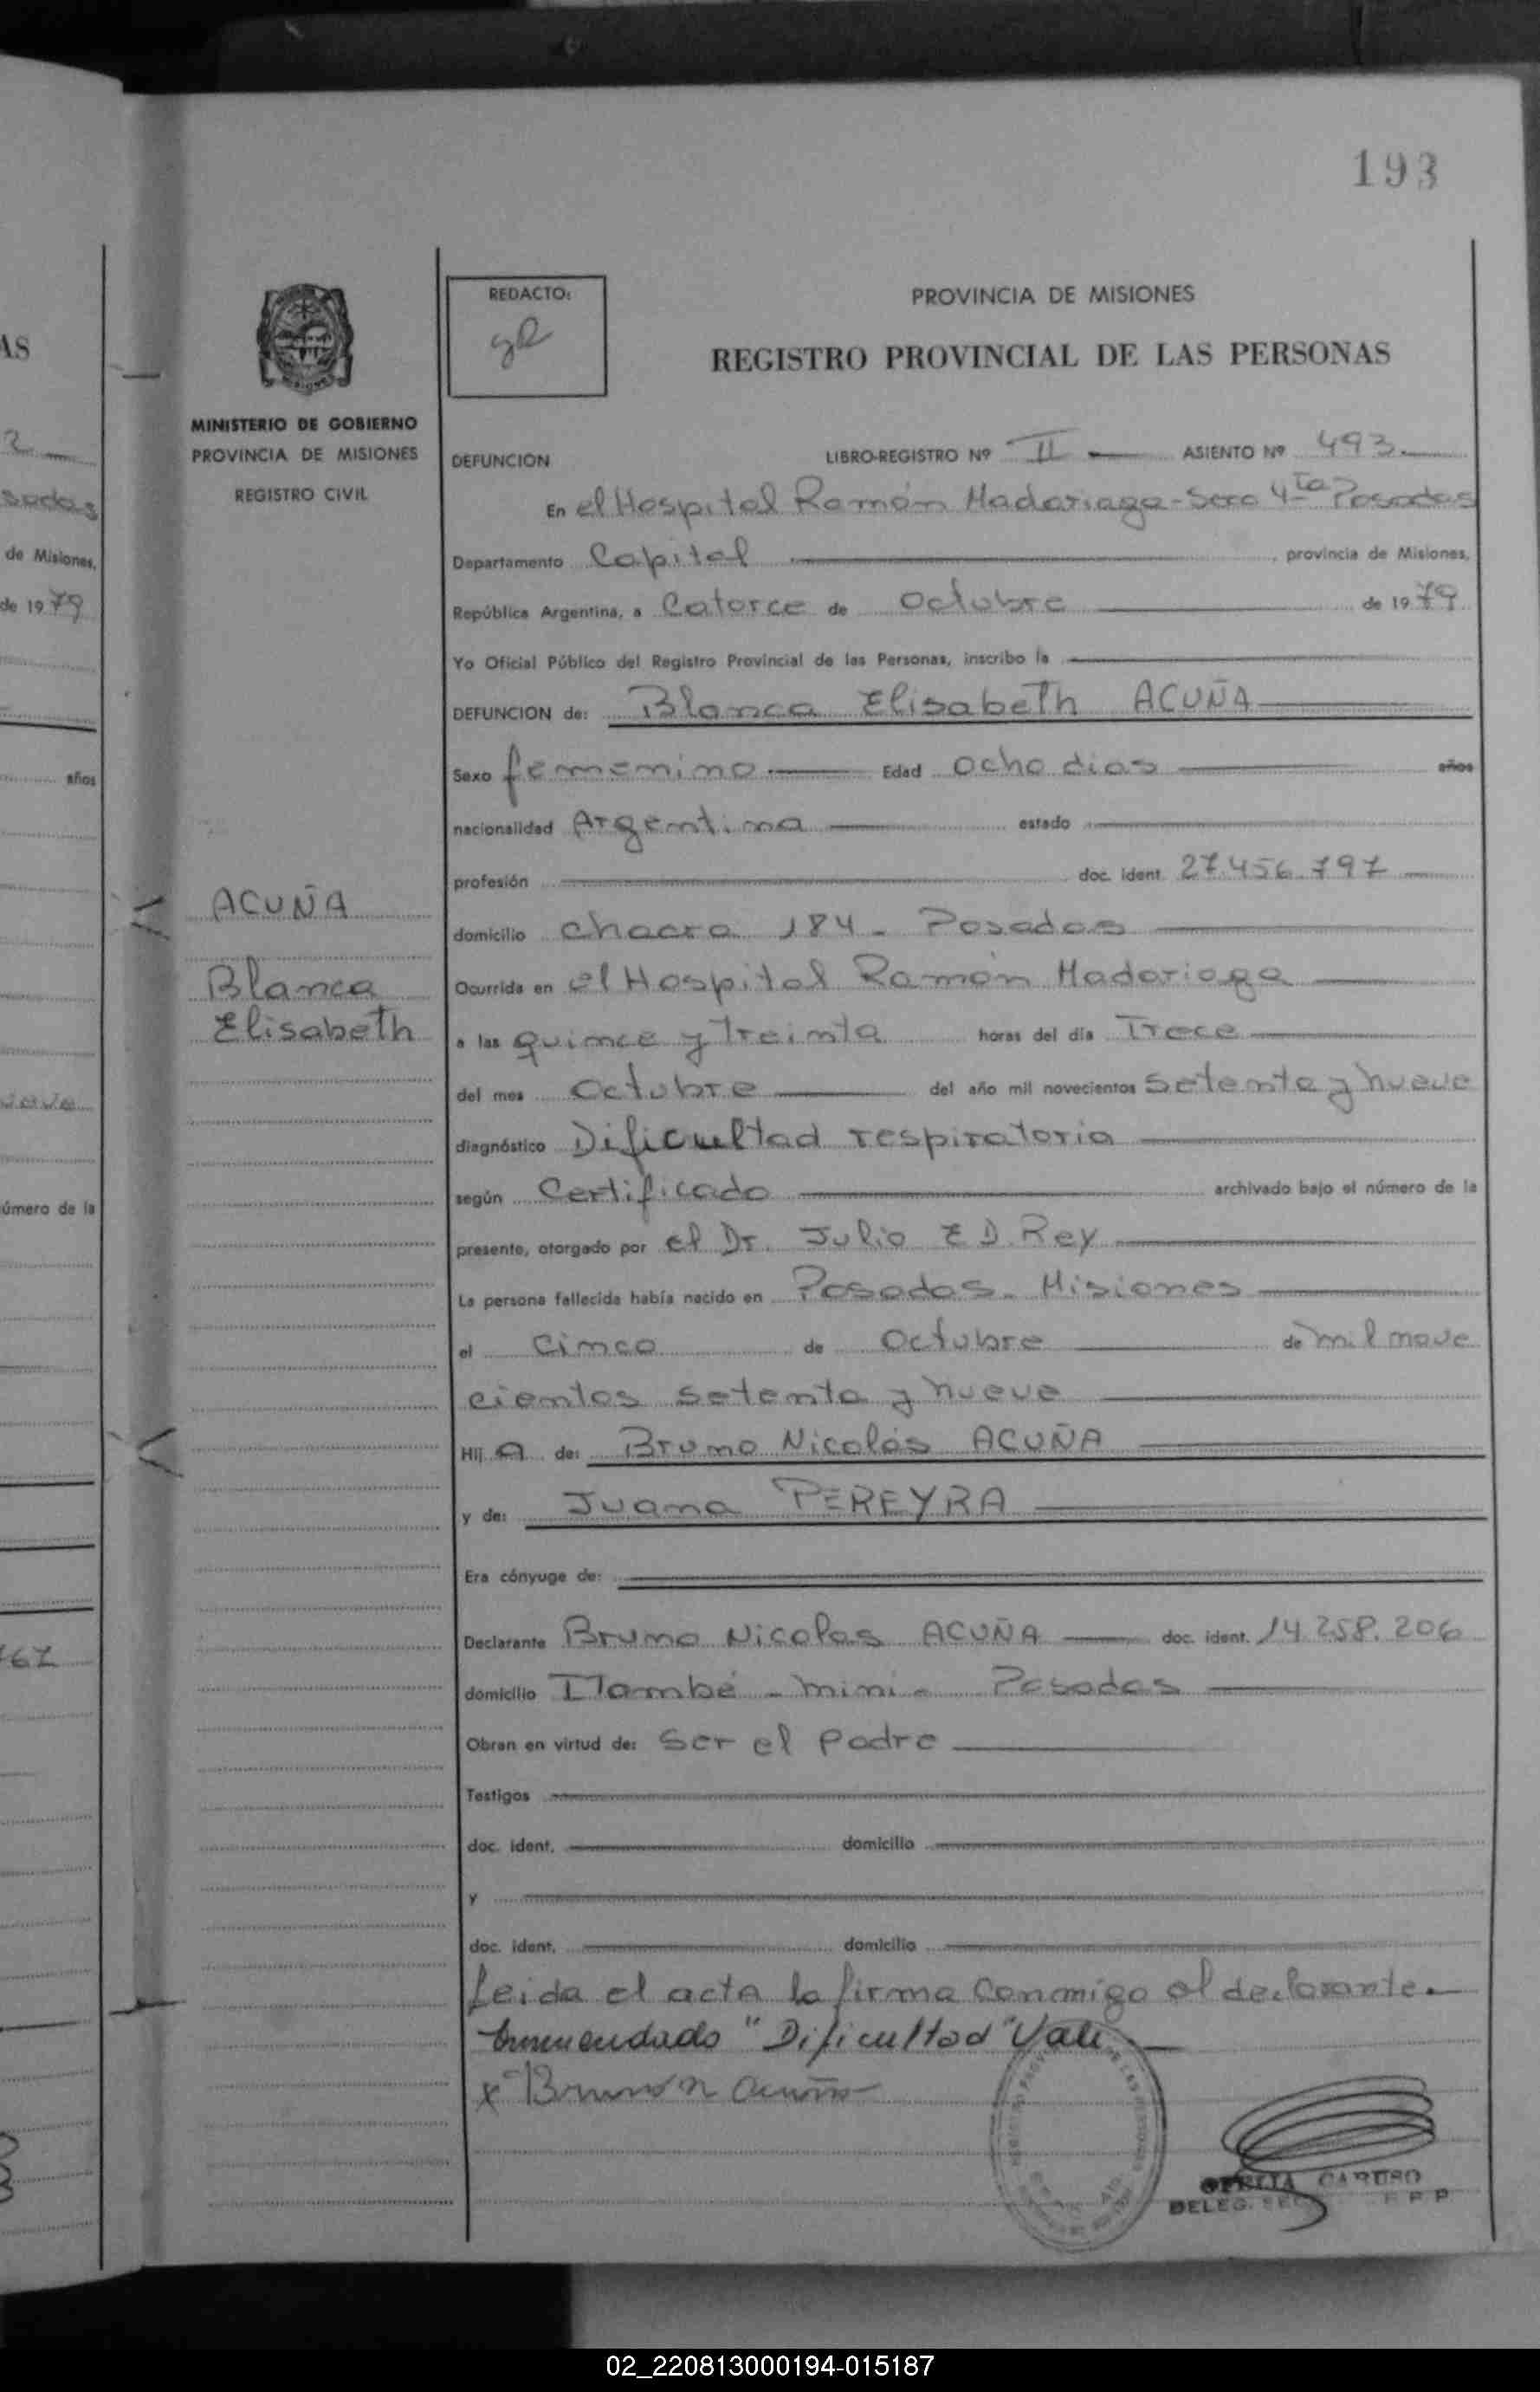 193
AS
2
sadas
de Misiones,
de 1979
años
úmero de la
67
MINISTERIO DE GOBIERNO
PROVINCIA DE MISIONES
REGISTRO CIVIL
ACUÑA
Blanca
Elisabeth
REDACTO:
PROVINCIA DE MISIONES
REGISTRO PROVINCIAL DE LAS PERSONAS
DEFUNCION LIBRO-REGISTRO Nº II ASIENTO Nº 493.
En el Hospital Ramón Madariaga - Secc 4ta Posadas
Departamento Capital , provincia de Misiones,
República Argentina, a Catorce de Octubre de 1979
Yo Oficial Público del Registro Provincial de las Personas, inscribo la
DEFUNCION de: Blanca Elisabeth ACUÑA
Sexo femenino Edad Ocho dias años
nacionalidad Argentina estado
profesión doc. ident. 27.456.797
domicilio Chacra 184 - Posadas
Ocurrida en el Hospital Ramón Madariaga
a las quince y Treinta horas del día Trece
del mes Octubre del año mil novecientos setenta y nueve
diagnóstico Dificultad respiratoria
según Certificado archivado bajo el número de la
presente, otorgado por el Dr. Julio E D Rey
La persona fallecida había nacido en Posadas - Misiones
el Cinco de Octubre de mil nove
cientos setenta y nueve
Hij A de: Bruno Nicolás ACUÑA
y de: Juana PEREYRA
Era cónyuge de:
Declarante Bruno Nicolas ACUÑA doc. ident. 14.258.206
domicilio Itambé - mini - Posadas
Obran en virtud de: Ser el padre
Testigos
doc. ident. domicilio
y
doc. ident. domicilio
Leida el acta la firma conmigo el declarante.
Enmendado "Dificultad" Vale
x Bruno N Acuña
OFELIA CARUSO
DELEG.
02_220813000194-015187